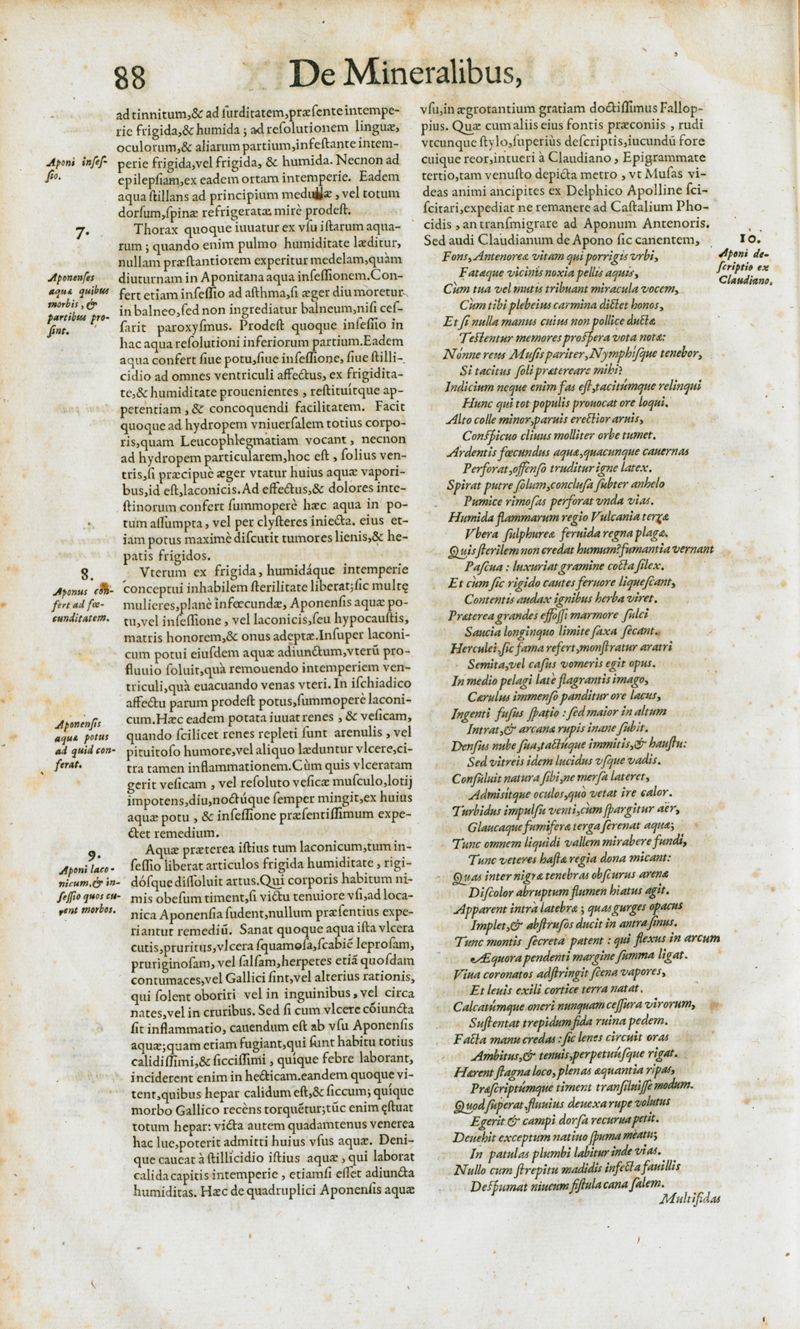 88
De Mineralibus,
ad tinnitum,& ad ſurditatem,præſente intempe-
rie frigida,& humida ; ad reſolutionem linguæ,
oculorum,& aliarum partium,infeſtante intem-
Aponi inſeſ-
ſio.
perie frigida,vel frigida, & humida. Necnon ad
epilepſiam,ex eadem ortam intemperie. Eadem
aqua ſtillans ad principium medullæ , vel totum
dorſum,ſpinæ refrigeratæ mirè prodeſt.
7.
Thorax quoque iuuatur ex vſu iſtarum aqua-
rum ; quando enim pulmo humiditate læditur,
nullam præſtantiorem experitur medelam,quàm
Aponenſes
aquæ quibus
morbis , &
partibus pro-
ſint.
diuturnam in Aponitana aqua inſeſſionem.Con-
fert etiam inſeſſio ad aſthma,ſi æger diu moretur
in balneo,ſed non ingrediatur balneum,niſi ceſ-
ſarit paroxyſmus. Prodeſt quoque inſeſſio in
hac aqua reſolutioni inferiorum partium.Eadem
aqua confert ſiue potu,ſiue inſeſſione, ſiue ſtilli-
cidio ad omnes ventriculi affectus, ex frigidita-
te,& humiditate prouenientes , reſtituítque ap-
petentiam , & concoquendi facilitatem. Facit
quoque ad hydropem vniuerſalem totius corpo-
ris,quam Leucophlegmatiam vocant, necnon
ad hydropem particularem,hoc eſt , ſolius ven-
tris,ſi præcipuè æger vtatur huius aquæ vapori-
bus,id eſt,laconicis.Ad effectus,& dolores inte-
ſtinorum confert ſummoperè hæc aqua in po-
tum aſſumpta , vel per clyſteres iniecta. eius et-
iam potus maximè diſcutit tumores lienis,& he-
patis frigidos.
8.
Aponus con-
fert ad fœ-
cunditatem.
Vterum ex frigida , humidáque intemperie
conceptui inhabilem ſterilitate liberat;ſic multę
mulieres,planè infœcundæ, Aponenſis aquæ po-
tu,vel inſeſſione , vel laconicis,ſeu hypocauſtis,
matris honorem,& onus adeptæ.Inſuper laconi-
cum potui eiuſdem aquæ adiunctum,vterū pro-
fluuio ſoluit,quà remouendo intemperiem ven-
triculi,quà euacuando venas vteri. In iſchiadico
affectu parum prodeſt potus,ſummoperè laconi-
Aponenſis
aquæ potus
ad quid con-
ferat.
cum.Hæc eadem potata iuuat renes , & veſicam,
quando ſcilicet renes repleti ſunt arenulis , vel
pituitoſo humore,vel aliquo læduntur vlcere,ci-
tra tamen inflammationem.Cùm quis vlceratam
gerit veſicam , vel reſoluto veſicæ muſculo,lotij
impotens,diu,noctúque ſemper mingit,ex huius
aquæ potu , & inſeſſione præſentiſſimum expe-
ctet remedium.
9.
Aponi laco-
nicum,& in-
ſeſſio quos cu-
rent morbos.
Aquæ præterea iſtius tum laconicum,tum in-
ſeſſio liberat articulos frigida humiditate , rigi-
dóſque diſſoluit artus.Qui corporis habitum ni-
mis obeſum timent,ſi victu tenuiore vſi,ad loca-
nica Aponenſia ſudent,nullum præſentius expe-
riantur remediū. Sanat quoque aqua iſta vlcera
cutis,pruritus,vlcera ſquamoſa,ſcabiē leproſam,
pruriginoſam, vel ſalſam,herpetes etiā quoſdam
contumaces,vel Gallici ſint,vel alterius rationis,
qui ſolent oboriri vel in inguinibus , vel circa
nates,vel in cruribus. Sed ſi cum vlcere cōiuncta
ſit inflammatio, cauendum eſt ab vſu Aponenſis
aquæ;quam etiam fugiant,qui ſunt habitu totius
calidiſſimi,& ſicciſſimi , quíque febre laborant,
inciderent enim in hecticam.eandem quoque vi-
tent,quibus hepar calidum eſt,& ſiccum; quíque
morbo Gallico recèns torquētur;tūc enim ęſtuat
totum hepar: victa autem quadamtenus venerea
hac lue,poterit admitti huius vſus aquæ. Deni-
que caueat à ſtillicidio iſtius aquæ , qui laborat
calida capitis intemperie , etiamſi eſſet adiuncta
humiditas. Hæc de quadruplici Aponenſis aquæ
vſu,in ægrotantium gratiam doctiſſimus Fallop-
pius. Quæ cum aliis eius fontis præconiis , rudi
vtcunque ſtylo,ſuperiùs deſcriptis,iucundū fore
cuique reor,intueri à Claudiano , Epigrammate
tertio,tam venuſto depicta metro , vt Muſas vi-
deas animi ancipites ex Delphico Apolline ſci-
ſcitari,expediat ne remanere ad Caſtalium Pho-
cidis , an tranſmigrare ad Aponum Antenoris.
10.
Aponi de-
ſcriptio ex
Claudiano.
Sed audi Claudianum de Apono ſic canentem,
Fons,Antenoreæ vitam qui porrigis vrbi,
Fataque vicinis noxia pellis aquis,
Cùm tua vel mutis tribuant miracula vocem,
Cùm tibi plebeius carmina dictet honos,
Et ſi nulla manus cuius non pollice ducta
Teſtentur memores proſpera vota notæ:
Nónne reus Muſis pariter,Nymphíſque tenebor,
Si tacitus ſoli prætereare mihi?
Indicium neque enim fas eſt,tacitúmque relinqui
Hunc qui tot populis prouocat ore loqui.
Alto colle minor,paruis erectior aruis,
Conſpicuo cliuus molliter orbe tumet.
Ardentis fœcundus aquæ,quacunque cauernas
Perforat,offenſo truditur igne latex.
Spirat putre ſolum,concluſa ſubter anhelo
Pumice rimoſas perforat vnda vias.
Humida flammarum regio Vulcania terræ
Vbera ſulphureæ feruida regna plagæ.
Quis ſterilem non credat humum?fumantia vernant
Paſcua : luxuriat gramine cocta ſilex.
Et cùm ſic rigido cautes feruore liqueſcant,
Contentis audax ignibus herba viret.
Præterea grandes effoſſi marmore ſulci
Saucia longinquo limite ſaxa ſecant.
Herculei,ſic fama refert,monſtratur aratri
Semita,vel caſus vomeris egit opus.
In medio pelagi latè flagrantis imago,
Cærulus immenſo panditur ore lacus,
Ingenti fuſus ſpatio : ſed maior in altum
Intrat,& arcana rupis inane ſubit.
Denſus nube ſua,tactúque immitis,& hauſtu:
Sed vitreis idem lucidus vſque vadis.
Conſuluit natura ſibi,ne merſa lateret,
Admiſitque oculos,quò vetat ire calor.
Turbidus impulſu venti,cùm ſpargitur aër,
Glaucaque fumiferæ terga ſerenat aquæ;
Tunc omnem liquidi vallem mirabere fundi,
Tunc veteres haſtæ regia dona micant:
Quas inter nigræ tenebras obſcurus arenæ
Diſcolor abruptum flumen hiatus agit.
Apparent intrà latebræ ; quas gurges opacus
Implet,& abſtruſos ducit in antra ſinus.
Tunc montis ſecreta patent : qui flexus in arcum
Æquora pendenti margine ſumma ligat.
Viua coronatos adſtringit ſcena vapores,
Et leuis exili cortice terra natat.
Calcatúmque oneri nunquam ceſſura virorum,
Suſtentat trepidum fida ruina pedem.
Facta manu credas : ſic lenes circuit oras
Ambitus,& tenuis,perpetuúſque rigat.
Hærent ſtagna loco,plenas æquantia ripas,
Præſcriptúmque timent tranſiluiſſe modum.
Quod ſuperat,fluuius deuexa rupe volutus
Egerit & campi dorſa recurua petit.
Deuehit exceptum natiuo ſpuma meatu;
In patulas plumbi labitur inde vias.
Nullo cum ſtrepitu madidis infecta fauillis
Deſpumat niueum fiſtula cana ſalem.
Multifidas